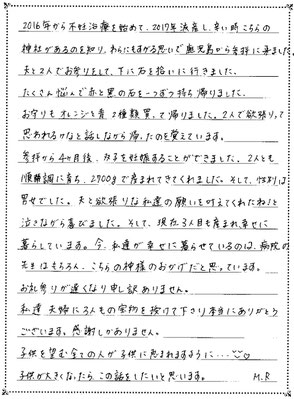 2016年から不妊治療を始めて、2017年流産し、辛い時こちらの
神社があるのを知り、わらにもすがる思いで鹿児島から参拝に来ました。
夫と2人でお参りをして、下に石を拾いに行きました。
たくさん悩んで赤と黒の石を一つずつ持ち帰りました。
お守りもオレンジと青、2種類買って帰りました。2人で欲張りって
思われるかなと話しながら帰ったのを覚えています。
参拝から4ヶ月後、双子を妊娠することができました。2人とも
順調に育ち、2700gで産まれてきてくれました。そして、性別は
男女でした。夫と欲張りな私達の願いを叶えてくれたねと
泣きながら喜びました。そして、現在3人目も産まれ幸せに
暮らしています。今、私達が幸せに暮らせているのは、病院の
先生はもちろん、こちらの神様のおかげだと思っています。
お礼参りが遅くなり申し訳ありません。
私達夫婦に3人もの宝物を授けて下さり本当にありがとう
ございます。感謝しかありません。
子供を望む全ての人が子供に恵まれますように…
子供が大きくなったら、この話をしたいと思います。 M.R